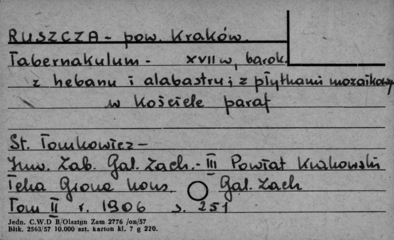 RUSZCZA - pow. Kraków.
Tabernakulum - XVII w, barok.
z hebanu i alabastru; z płytkami mozaikowy
w Kościele paraf
St. Tomkowicz -
Inw. Zab. Gal. Zach. - III Powiat Krakowski
Teka Grona Kons. Gal. Zach
Tom II r. 1906 s. 251
Jedn. C.W.D B/Olsztyn Zam 2776 /on/57
Blik. 2563/57 10.000 szt. karton kl. 7 g 220.